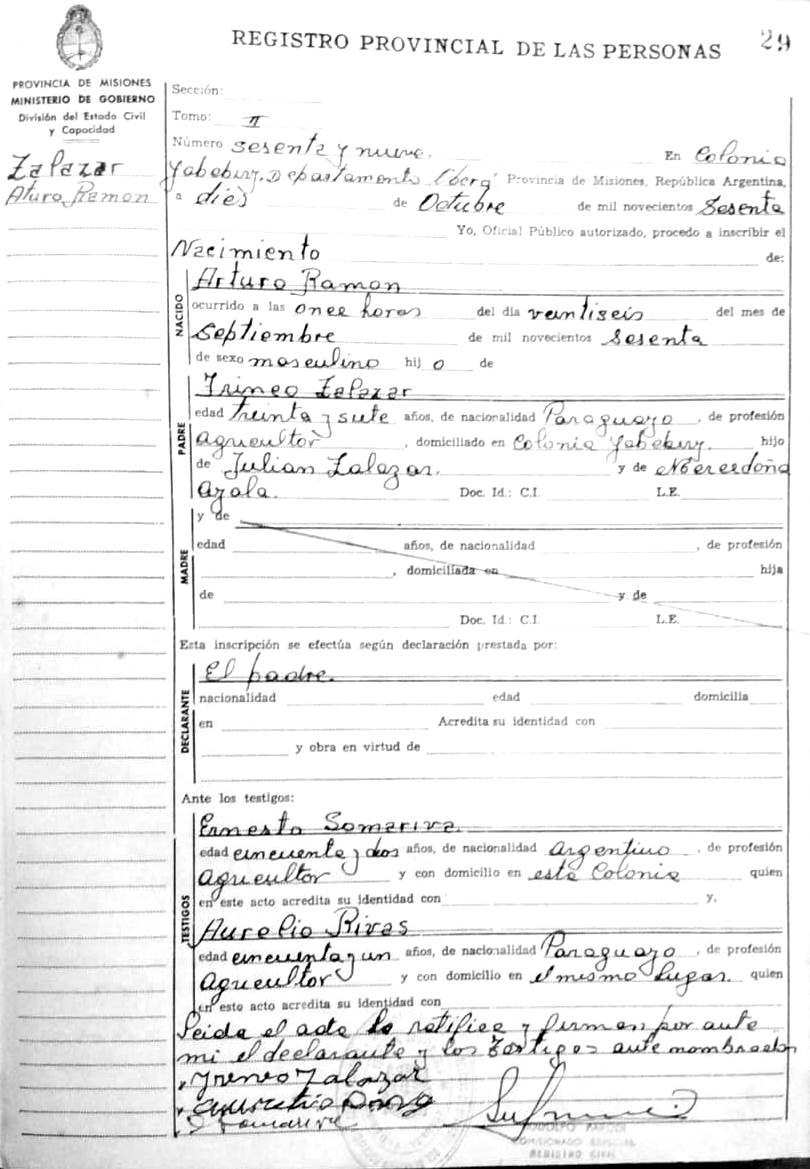 REGISTRO PROVINCIAL DE LAS PERSONAS
29
PROVINCIA DE MISIONES
MINISTERIO DE GOBIERNO
División del Estado Civil
y Capacidad
Zalazar
Arturo Ramon
Sección:
Tomo: II
Número sesenta y nueve. En Colonia
Yabebiry, Departamento Oberá Provincia de Misiones, República Argentina,
a dies de Octubre de mil novecientos Sesenta
Yo, Oficial Público autorizado, procedo a inscribir el
Nacimiento de:
NACIDO
Arturo Ramon
ocurrido a las once horas del día veintiseis del mes de
Septiembre de mil novecientos Sesenta
de sexo masculino hij o de
PADRE
Irineo Zalazar
edad treinta y siete años, de nacionalidad Paraguayo, de profesión
agricultor, domiciliado en Colonia Yabebiry. hijo
de Julian Zalazar. y de
Ayala. Doc. Id.: C.I. L.E.
MADRE
y de
edad años, de nacionalidad , de profesión
, domiciliada en hija
de y de
Doc. Id.: C.I. L.E.
Esta inscripción se efectúa según declaración prestada por:
DECLARANTE
El padre.
nacionalidad edad domicilia
en Acredita su identidad con
y obra en virtud de
Ante los testigos:
TESTIGOS
Ernesto Somariva.
edad cincuenta y dos años, de nacionalidad Argentino, de profesión
agricultor y con domicilio en esta Colonia quien
en este acto acredita su identidad con y,
Aurelio Rivas
edad cincuenta y un años, de nacionalidad Paraguayo, de profesión
agricultor y con domicilio en el mismo lugar. quien
en este acto acredita su identidad con
Leida el acta la ratifica y firman por ante
mi el declarante y los testigos ante nombrados
Yrineo Zalazar
E Somariva
RODOLFO
COMISIONADO ESPECIAL
REGISTRO CIVIL